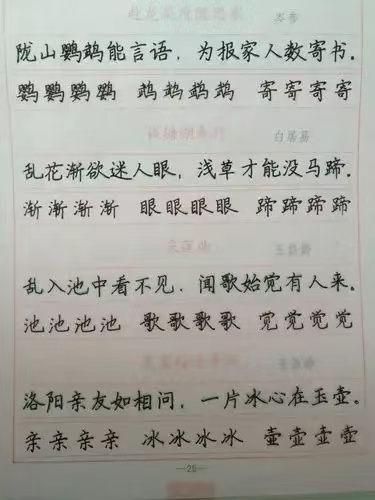 赴北庭度陇思家 岑参
陇山鹦鹉能言语，为报家人数寄书。
鹦鹦鹦鹦 鹉鹉鹉鹉 寄寄寄寄
钱塘湖春行 白居易
乱花渐欲迷人眼，浅草才能没马蹄。
渐渐渐渐 眼眼眼眼 蹄蹄蹄蹄
采莲曲 王昌龄
乱入池中看不见，闻歌始觉有人来。
池池池池 歌歌歌歌 觉觉觉觉
洛阳亲友如相问，一片冰心在玉壶。
亲亲亲亲 冰冰冰冰 壶壶壶壶
—25—